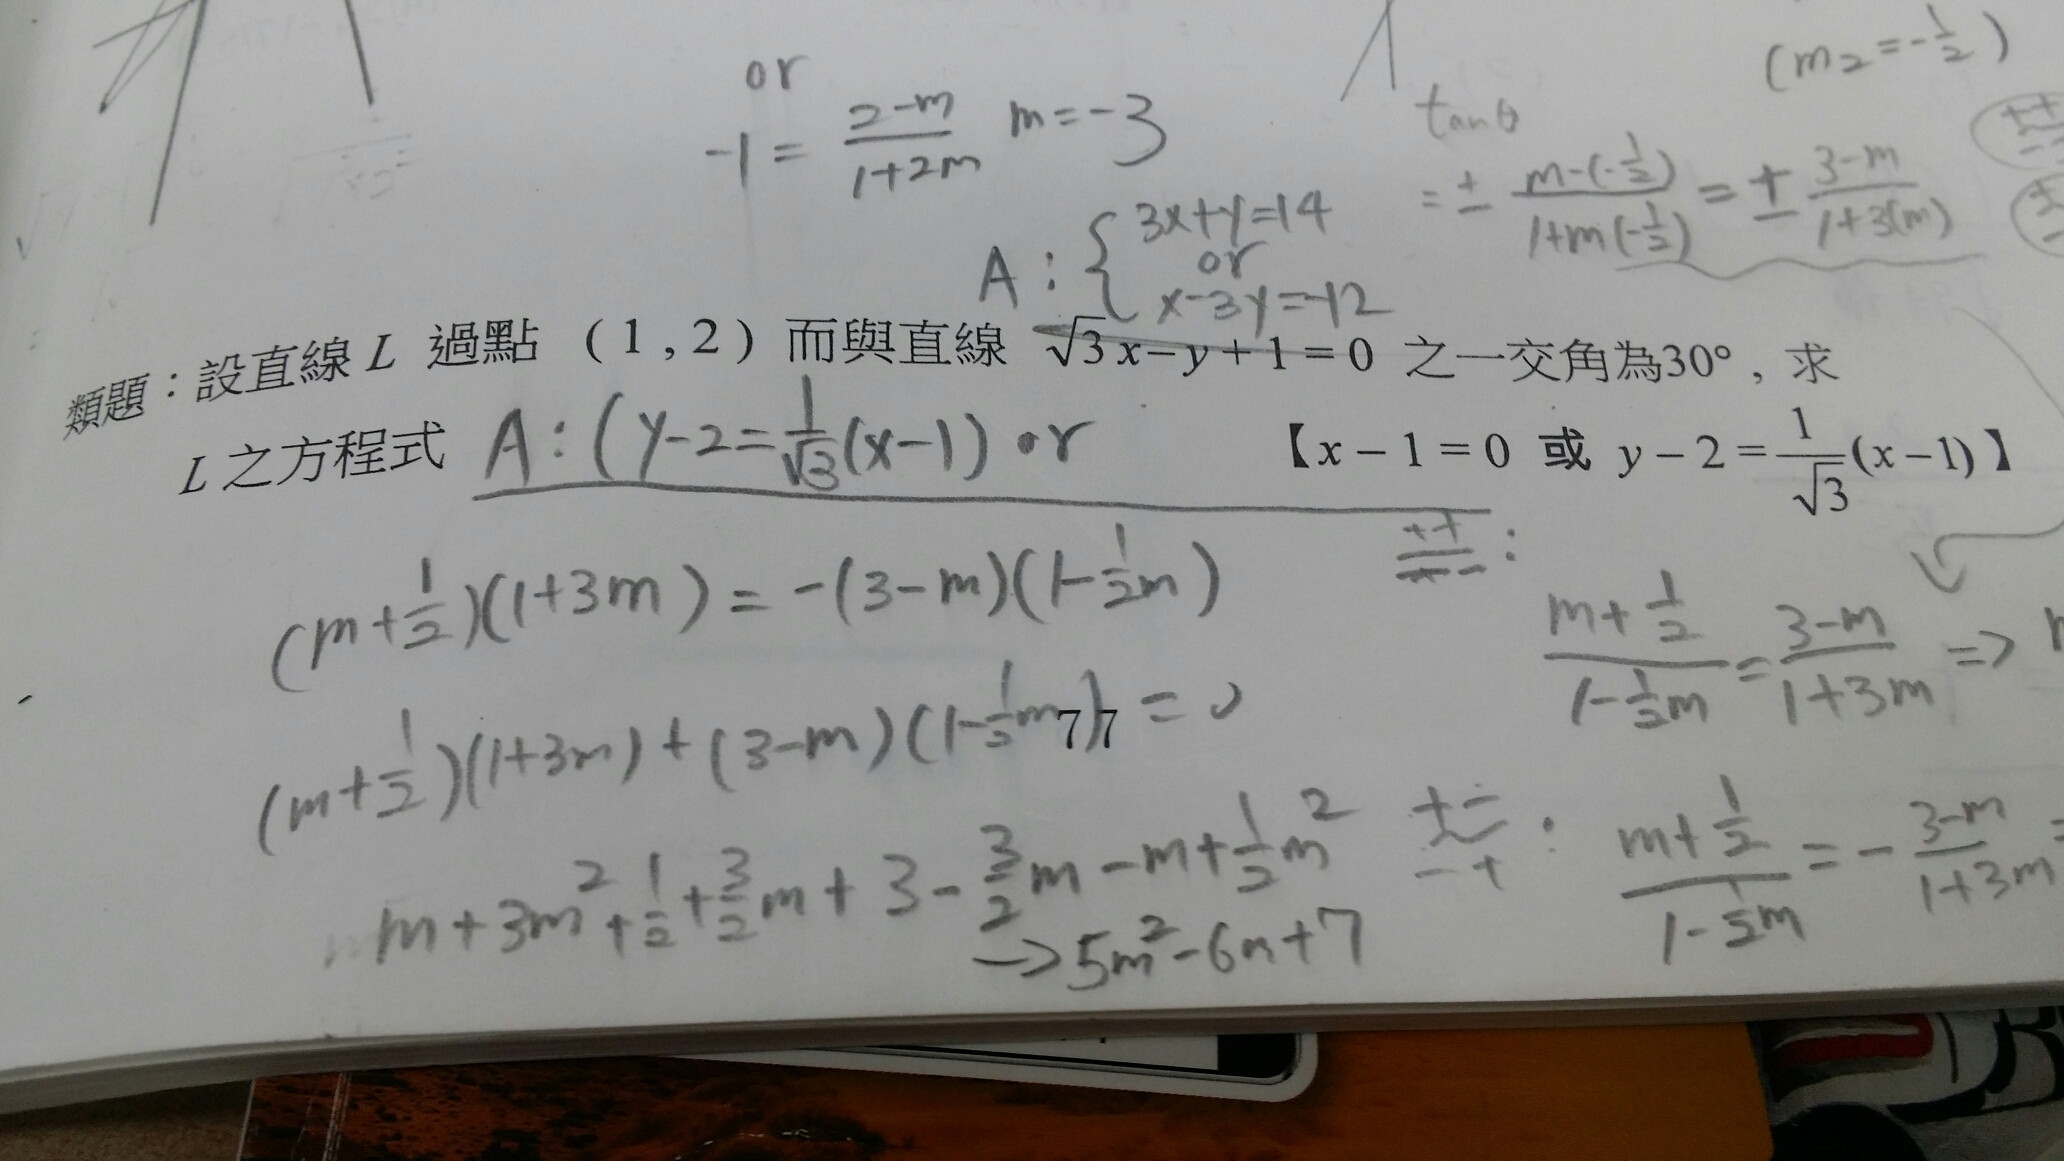 or
-1 = \frac{2-m}{1+2m} m=-3
(m₂=-\frac{1}{2})
tanθ
= ± \frac{m-(-\frac{1}{2})}{1+m(-\frac{1}{2})} = ± \frac{3-m}{1+3(m)}
A : { 3x+y=14
or
x-3y=-12
類題：設直線 L 過點 (1,2) 而與直線 √3x−y+1=0 之一交角為30°，求
L 之方程式 A:(y-2=\frac{1}{√3}(x-1) or 【x−1=0 或 y−2=\frac{1}{√3}(x−1)】
(m+\frac{1}{2})(1+3m) = -(3-m)(1-\frac{1}{2}m)
(m+\frac{1}{2})(1+3m)+(3-m)(1-\frac{1}{2}m) = 0
77
m+3m²+\frac{1}{2}+\frac{3}{2}m+3-\frac{3}{2}m-m+\frac{1}{2}m²
→5m²-6m+7
++
-- :
\frac{m+\frac{1}{2}}{1-\frac{1}{2}m} = \frac{3-m}{1+3m} =>
+-
-+ :
\frac{m+\frac{1}{2}}{1-\frac{1}{2}m} = -\frac{3-m}{1+3m} =